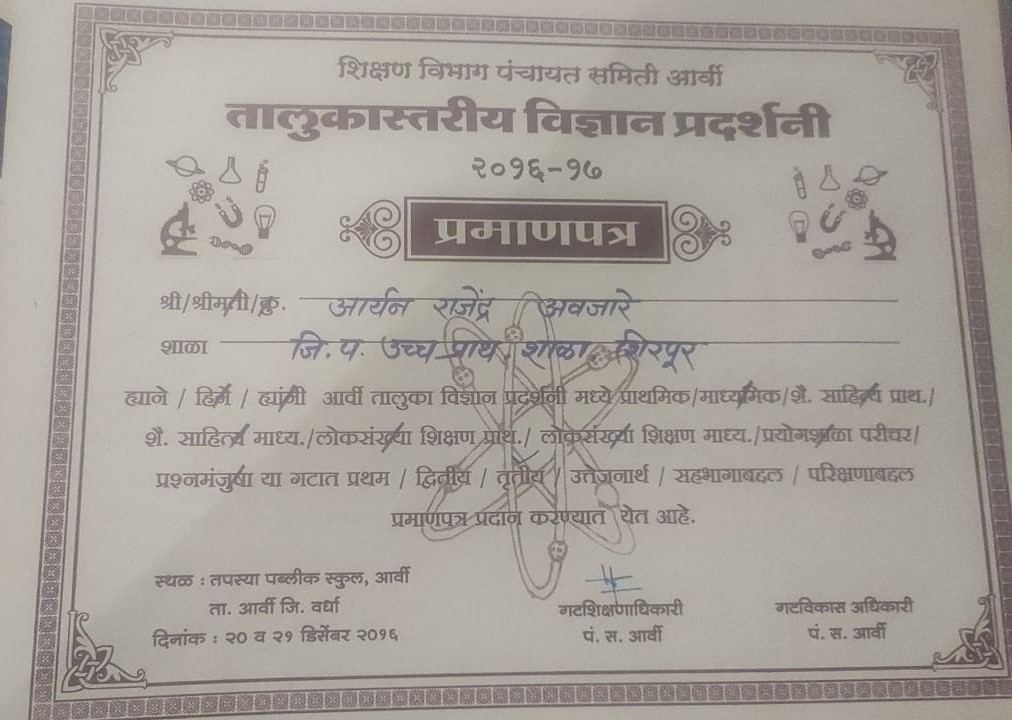 शिक्षण विभाग पंचायत समिती आर्वी
तालुकास्तरीय विज्ञान प्रदर्शनी
२०१६-१७
प्रमाणपत्र
श्री/श्रीमती/कु. आर्यन राजेंद्र अवजारे
शाळा जि.प. उच्च प्राथ. शाळा शिरपूर
ह्याने / हिने / ह्यांनी आर्वी तालुका विज्ञान प्रदर्शनी मध्ये प्राथमिक/माध्यमिक/शै. साहित्य प्राथ./
शै. साहित्य माध्य./लोकसंख्या शिक्षण प्राथ./ लोकसंख्या शिक्षण माध्य./प्रयोगशाळा परीचर/
प्रश्नमंजुषा या गटात प्रथम / द्वितीय / तृतीय / उत्तेजनार्थ / सहभागाबद्दल / परिक्षणाबद्दल
प्रमाणपत्र प्रदान करण्यात येत आहे.
स्थळ : तपस्या पब्लीक स्कुल, आर्वी
ता. आर्वी जि. वर्धा
दिनांक : २० व २१ डिसेंबर २०१६
गटशिक्षणाधिकारी
पं. स. आर्वी
गटविकास अधिकारी
पं. स. आर्वी